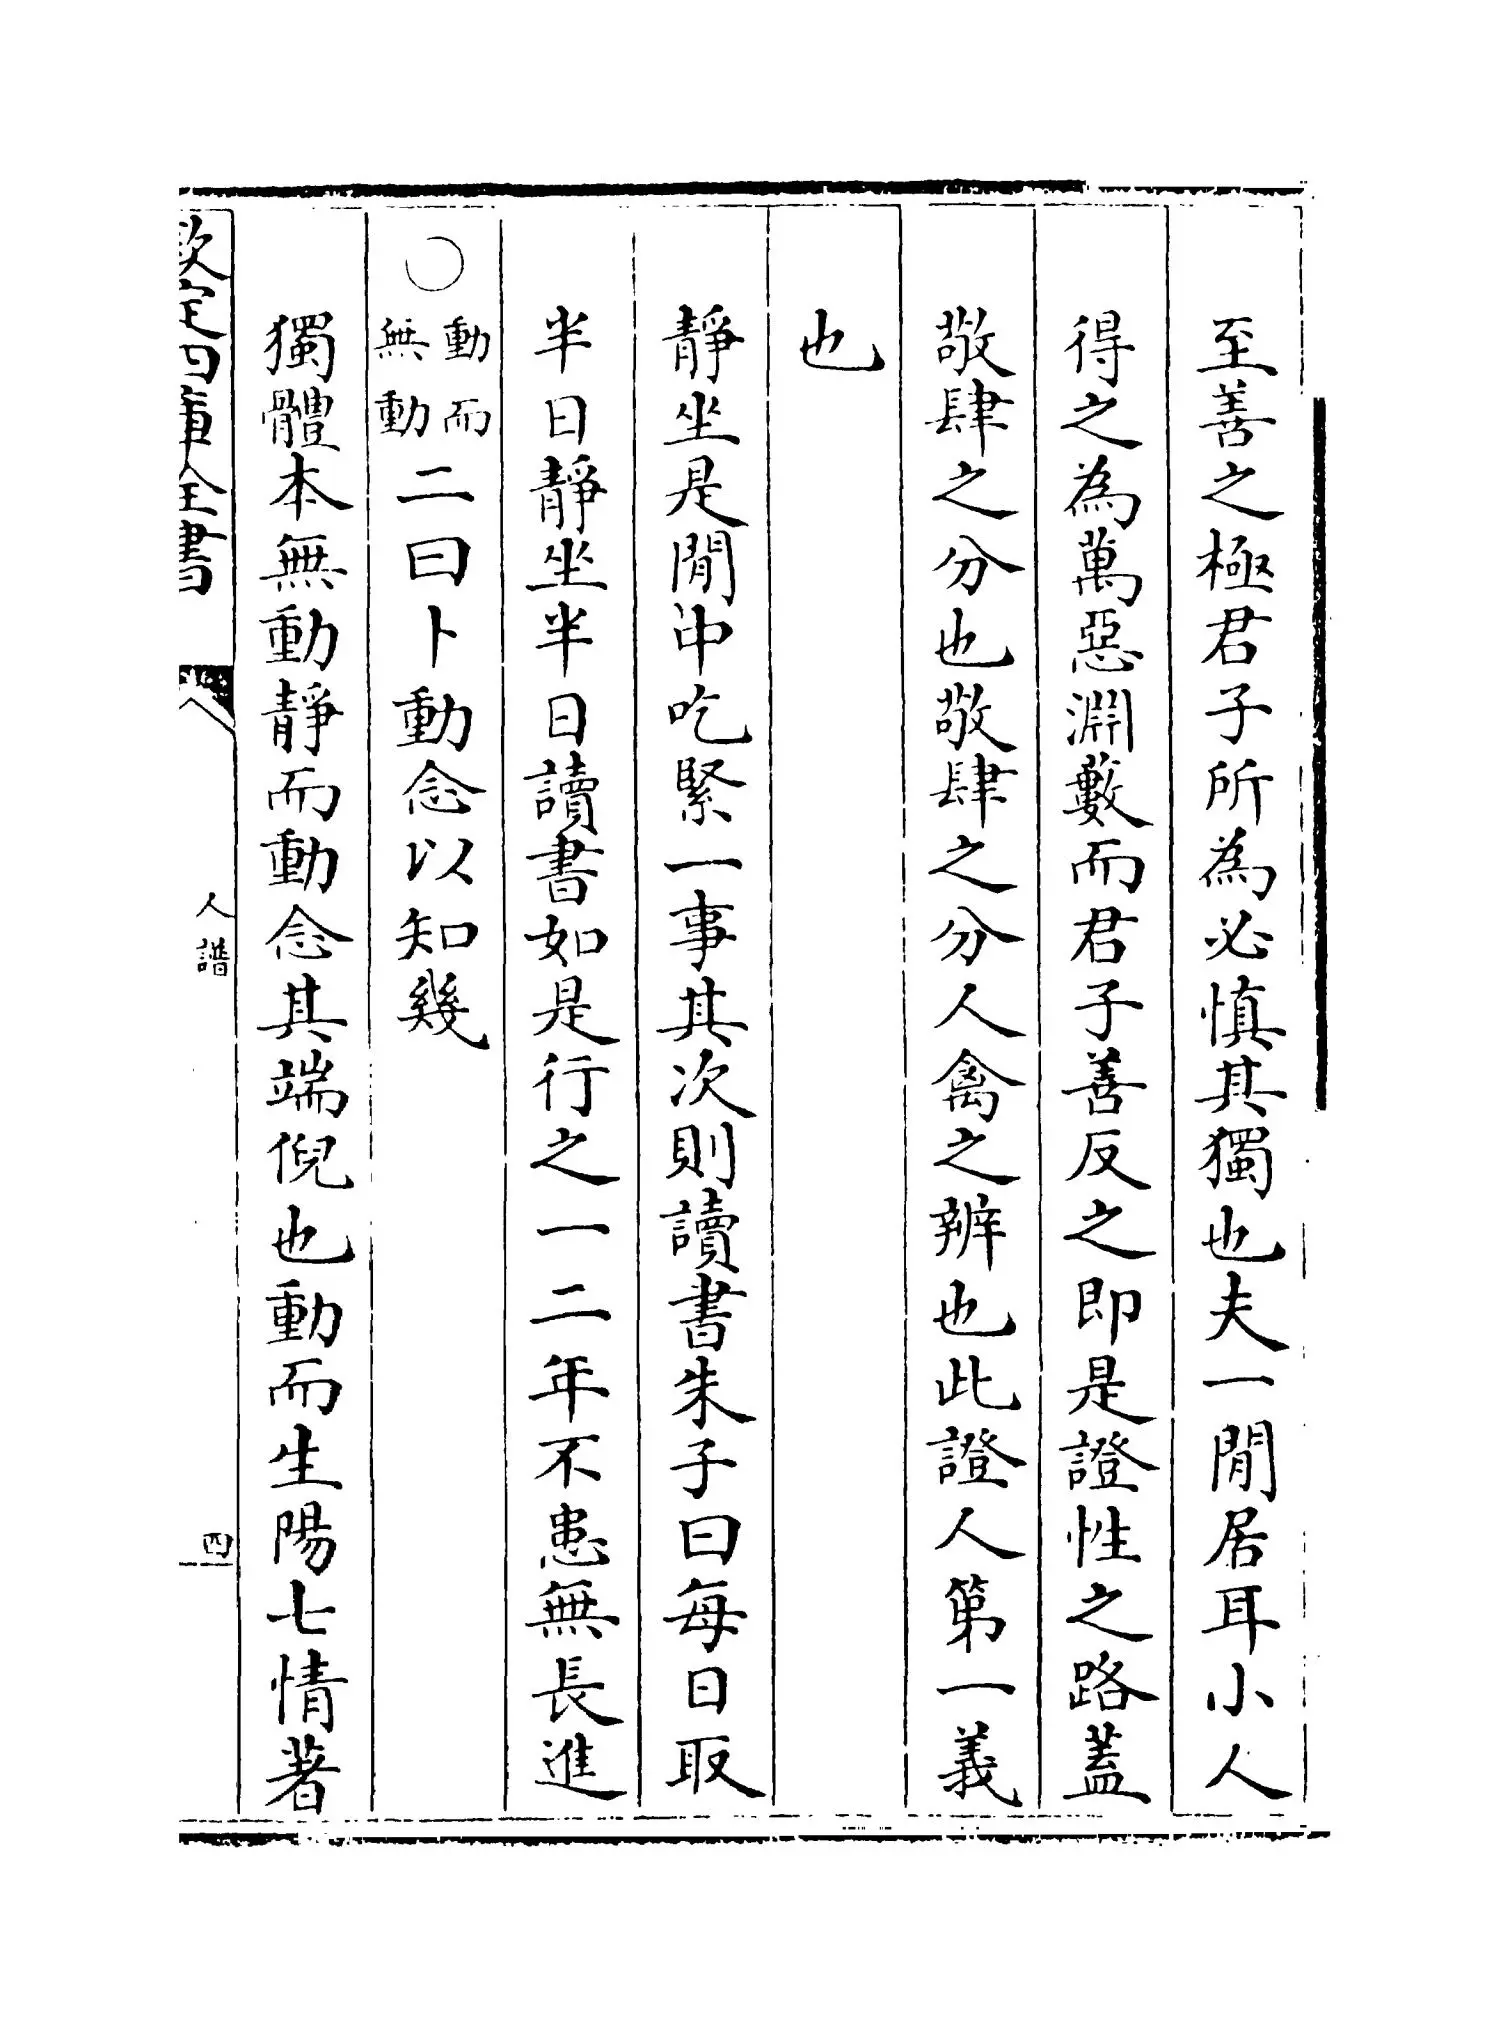 至善之極君子所為必慎其獨也夫一閒居耳小人
得之為萬惡淵藪而君子善反之即是證性之路蓋
敬肆之分也敬肆之分人禽之辨也此證人第一義
也
靜坐是閒中吃緊一事其次則讀書朱子曰每日取
半日靜坐半日讀書如是行之一二年不患無長進
○動而無動二曰卜動念以知幾
獨體本無動靜而動念其端倪也動而生陽七情著
欽定四庫全書
人譜
四